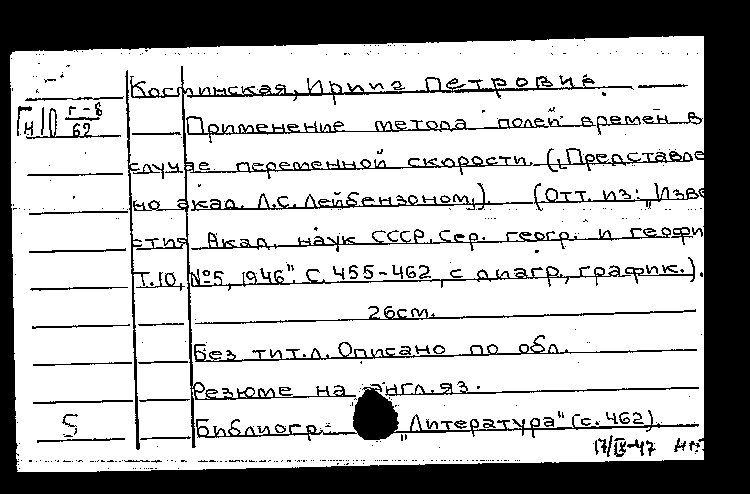 Костинская, Ирина Петровна.
Гн10 г-8
62
Применение метода полей времен в
случае переменной скорости. („Представле
но акад. Л.С. Лейбензоном„). (Отт. из: „Изве
стия Акад. наук СССР. Сер. геогр. и геофи
Т.10, №5, 1946". С. 455-462, с диагр., график.).
26см.
Без тит.л. Описано по обл.
Резюме на англ.яз.
5
Библиогр.: „Литература" (с. 462).
17/IX-47